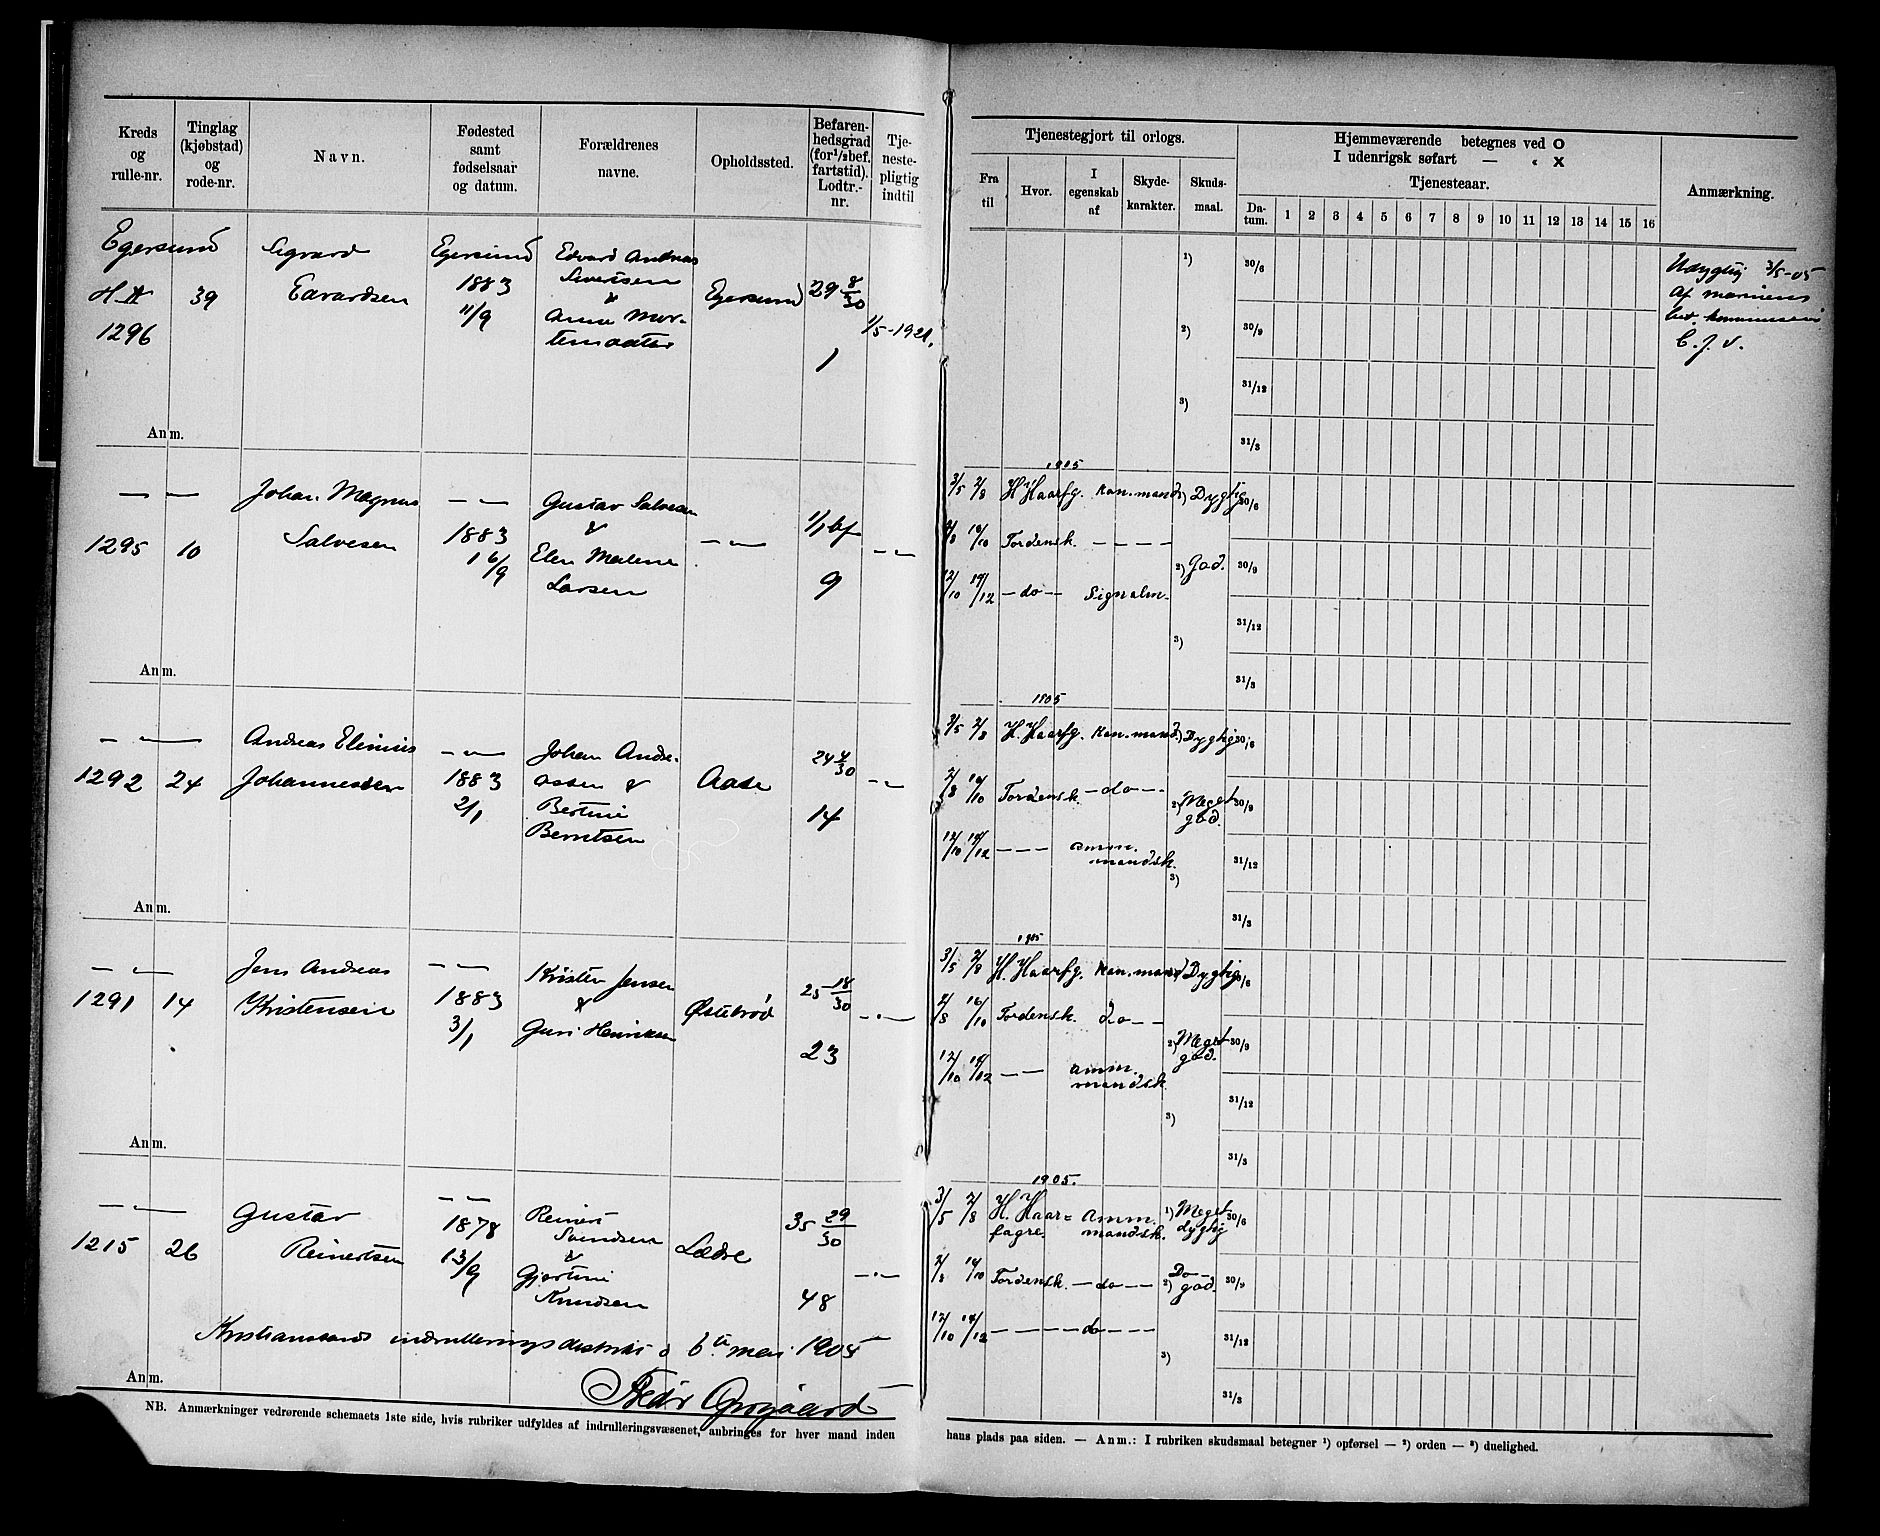 Kreds og rulle-nr.
Tinglag (kjøbstad) og rode-nr.
Navn.
Fødested samt fødselsaar og datum.
Forældrenes navne.
Opholdssted.
Befaren-hedsgrad (for 1/1 bef. fartstid). Lodtr.-nr.
Tje-neste-pligtig indtil
Tjenestegjort til orlogs.
Fra til
Hvor.
I egenskab af
Skyde-karakter.
Skuds-maal.
Hjemmeværende betegnes ved O
I udenrigsk søfart — „ X
Tjenesteaar.
Da-tum. 1 2 3 4 5 6 7 8 9 10 11 12 13 14 15 16
Anmærkning.
Egersund
H.A 39
1296
Sigvard
Edvardsen
Egersund
1883
11/9
Edvard Andreas
Sivertsen
&
Anna Mor-
tensdatter
Egersund
29 8/30
1
1/5-1921.
1) 30/6
2) 30/9
3) 31/12
31/3
Udygtig 3/5-05
af marinens
C. f. v.
Anm.
— —
1295 10
Johan Magnus
Salvesen
— —
1883
16/9
Gustav Salvesen
&
Elen Malene
Larsen
— „ —
1/1 bf
9
— „ —
1905
3/5 2/8 H. Haarfg. Kan.mand 1) Dygtig 30/6
2/8 10/10 Tordensk. — — — —
2) God. 30/9
12/10 19/12 — do — Signalm.
3) 31/12
31/3
Anm.
— „ —
1292 24
Andreas Elinius
Johannessen
— „ —
1883
2/1
Johan Andre-
assen &
Bertine
Berntsen
Aase
24 4/30
14
— „ —
1905
3/5 2/8 H. Haarfg. Kan.mand. 1) Dygtig 30/6
2/8 10/10 Tordensk. — do — 2) Meget god. 30/9
12/10 19/12 — — — amm. mandsk.
3) 31/12
31/3
Anm.
— „ —
1291 14
Jens Andreas
Kristensen
— —
1883
3/1
Kristen Jensen
&
Guri Henriksen
Østebrød
25 18/30
23
— „ —
1905
3/5 2/8 H. Haarfg. Kan.mand Dygtig 30/6
2/8 10/10 Tordensk. do — —
2) Meget god. 30/9
12/10 19/12 — — amm. mandsk.
3) 31/12
31/3
Anm.
— „ —
1215 26
Gustav
Reinertsen
— —
1878
13/9
Reinert
Svendsen
&
Gjertine
Knudsen
Lædre
35 29/30
48
— „ —
1905.
3/5 2/8 H. Haar= fagre. Amm. mandsk. 1) Meget dygtig 30/6
2/8 10/10 Tordensk. — do — — Do — 2) god. 30/9
12/10 19/12 — — — do — —
3) 31/12
31/3
Kristianssands indrulleringsdistrikt d 6te mai 1905
Anm.
NB. Anmærkninger vedrørende schemaets 1ste side, hvis rubriker udfyldes af indrulleringsvæsenet, anbringes for hver mand inden
hans plads paa siden. — Anm.: I rubriken skudsmaal betegner 1) opførsel — 2) orden — 3) duelighed.